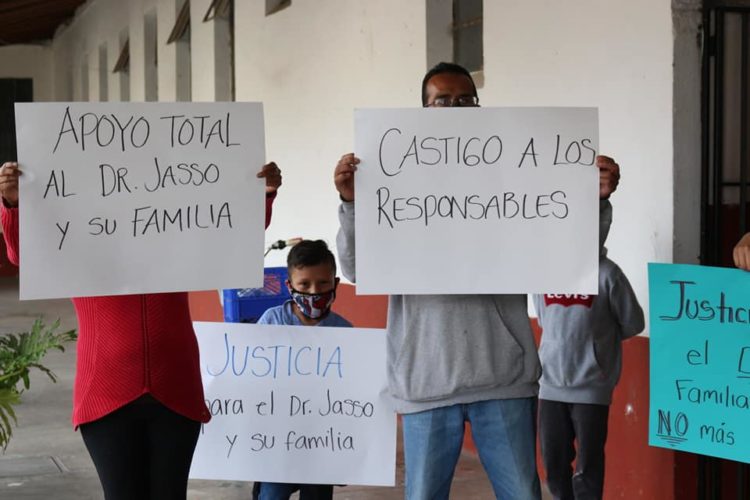 APOYO TOTAL
AL DR. JASSO
Y SU FAMILIA
CASTIGO A LOS
RESPONSABLES
JUSTICIA
para el Dr. Jasso
y su familia
LEVI'S
el
Familia
NO más